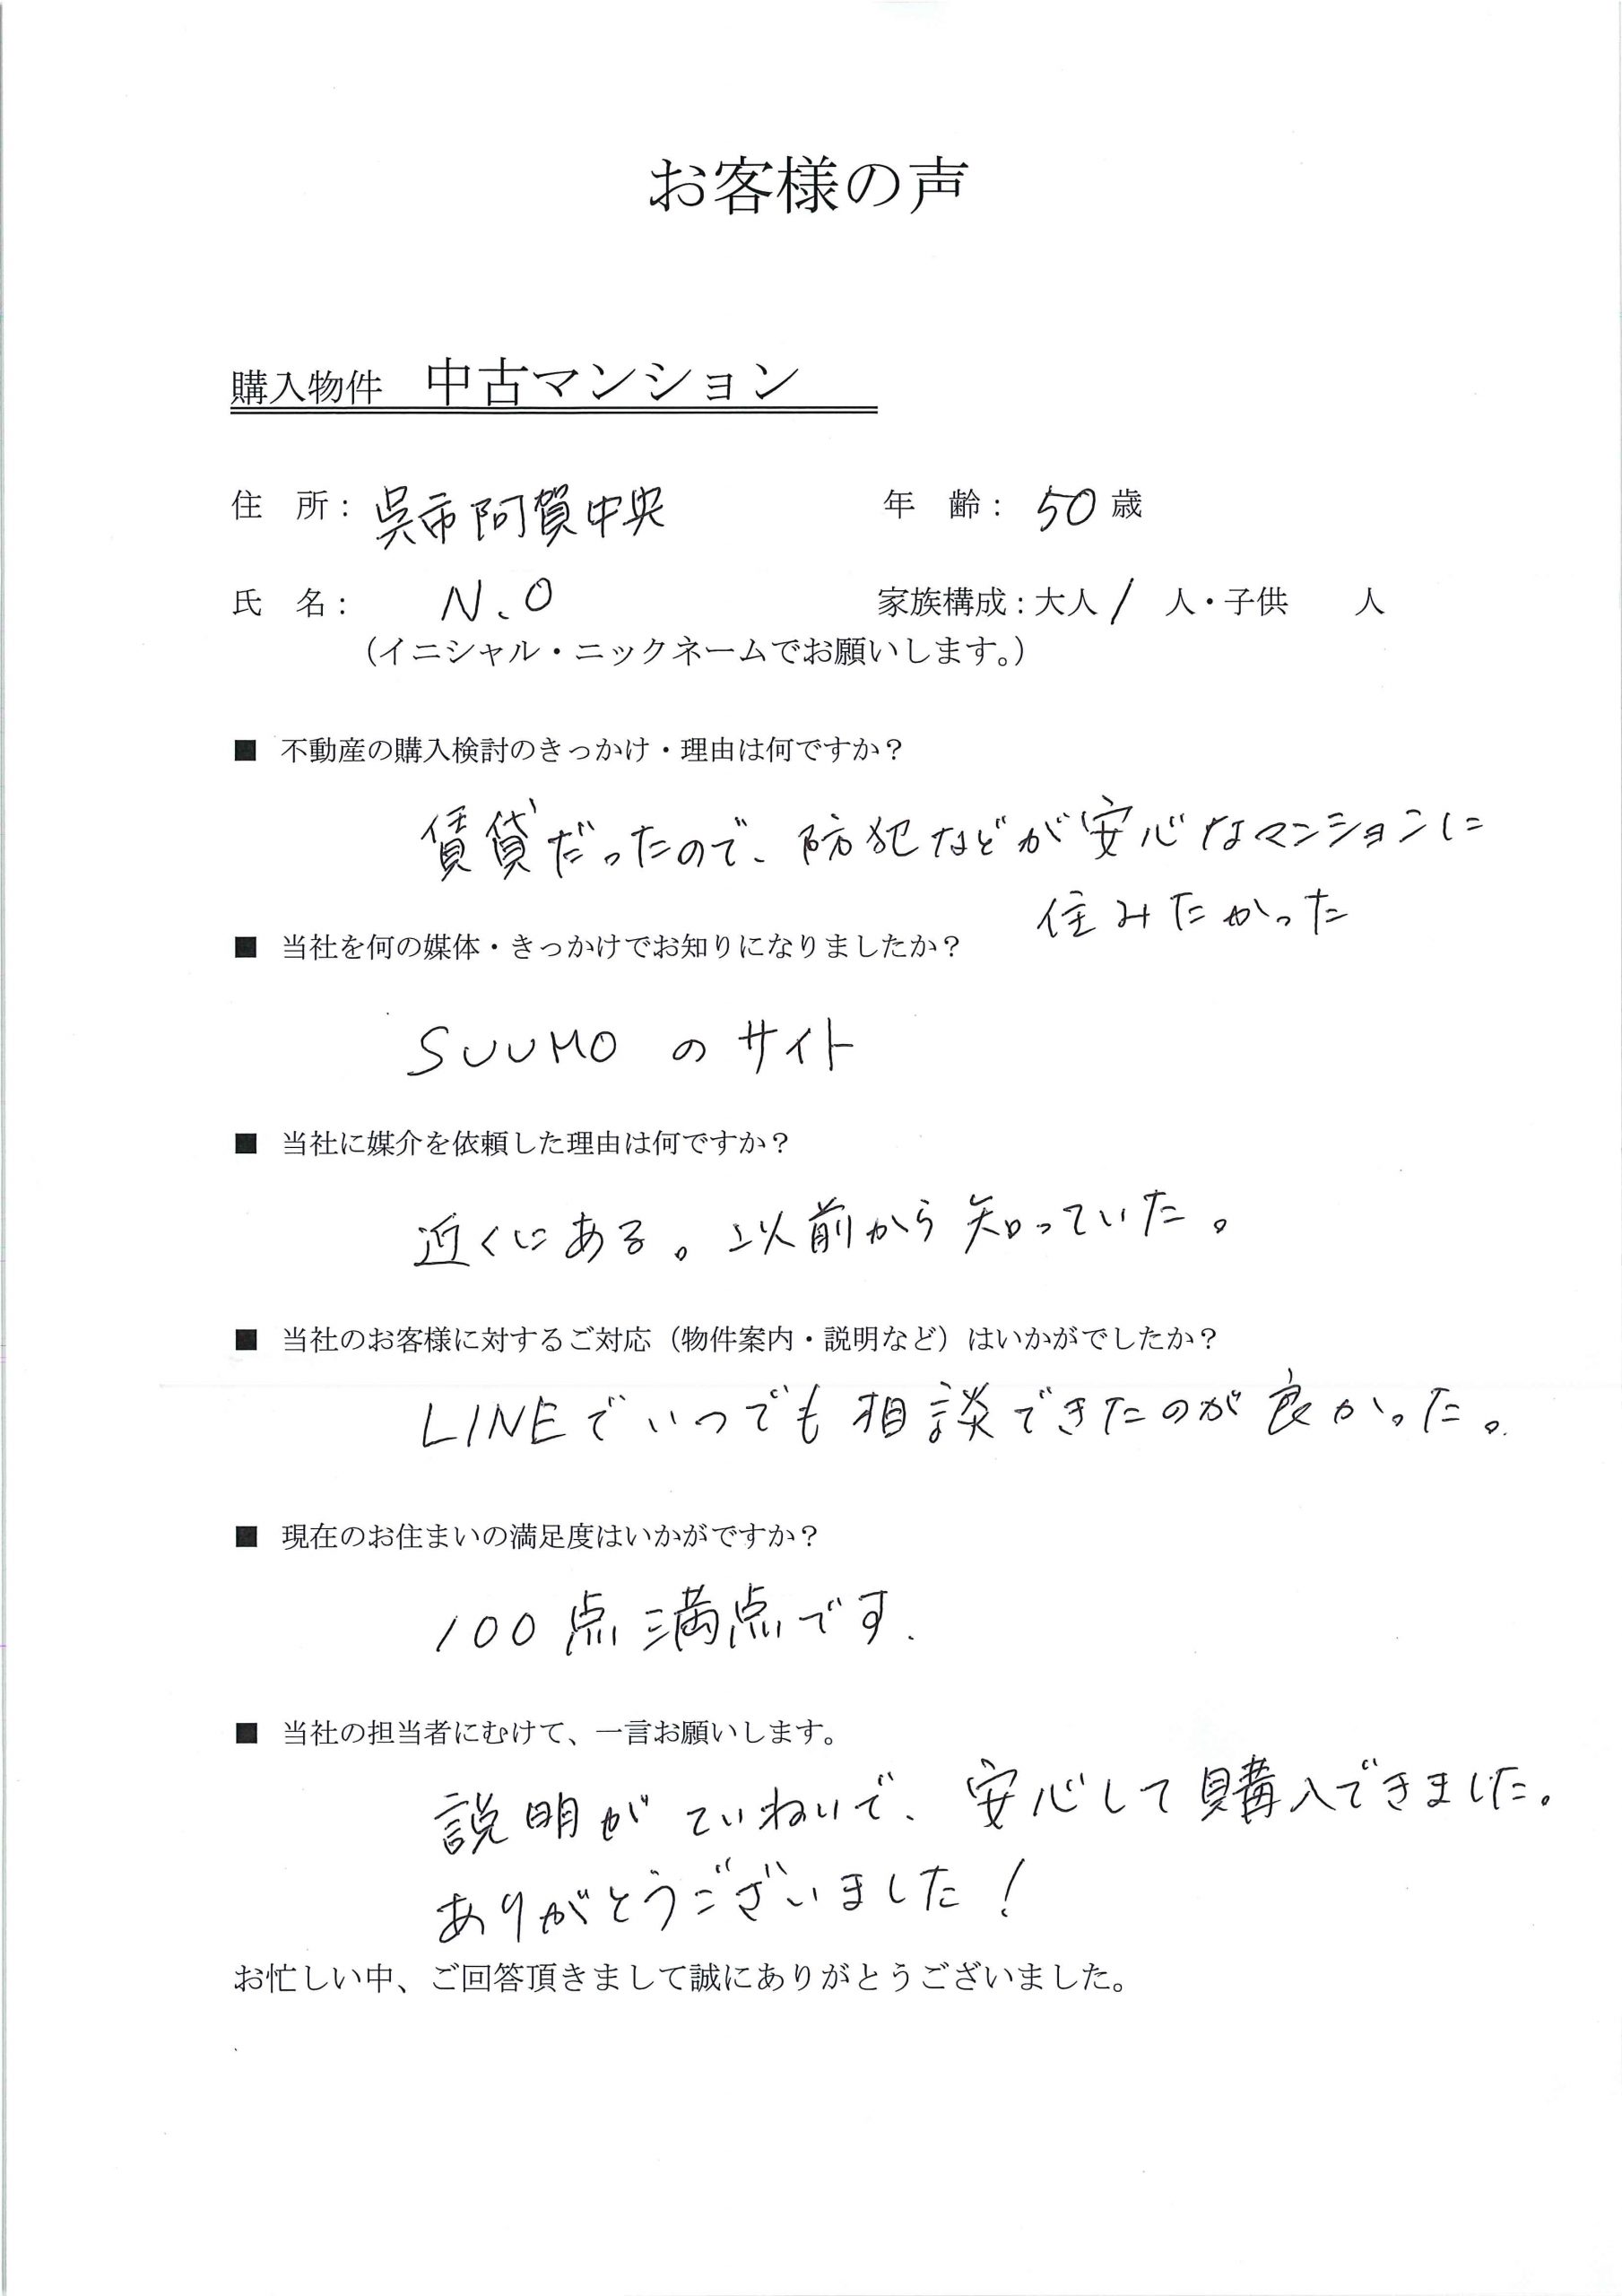 お客様の声
購入物件　中古マンション
住　所：呉市阿賀中央　年　齢：50歳
氏　名：N.O　家族構成：大人1人・子供　人
（イニシャル・ニックネームでお願いします。）
■ 不動産の購入検討のきっかけ・理由は何ですか？
賃貸だったので、防犯などが安心なマンションに
住みたかった
■ 当社を何の媒体・きっかけでお知りになりましたか？
SUUMOのサイト
■ 当社に媒介を依頼した理由は何ですか？
近くにある。以前から知っていた。
■ 当社のお客様に対するご対応（物件案内・説明など）はいかがでしたか？
LINEでいつでも相談できたのが良かった。
■ 現在のお住まいの満足度はいかがですか？
100点満点です.
■ 当社の担当者にむけて、一言お願いします。
説明がていねいで、安心して購入できました。
ありがとうございました！
お忙しい中、ご回答頂きまして誠にありがとうございました。